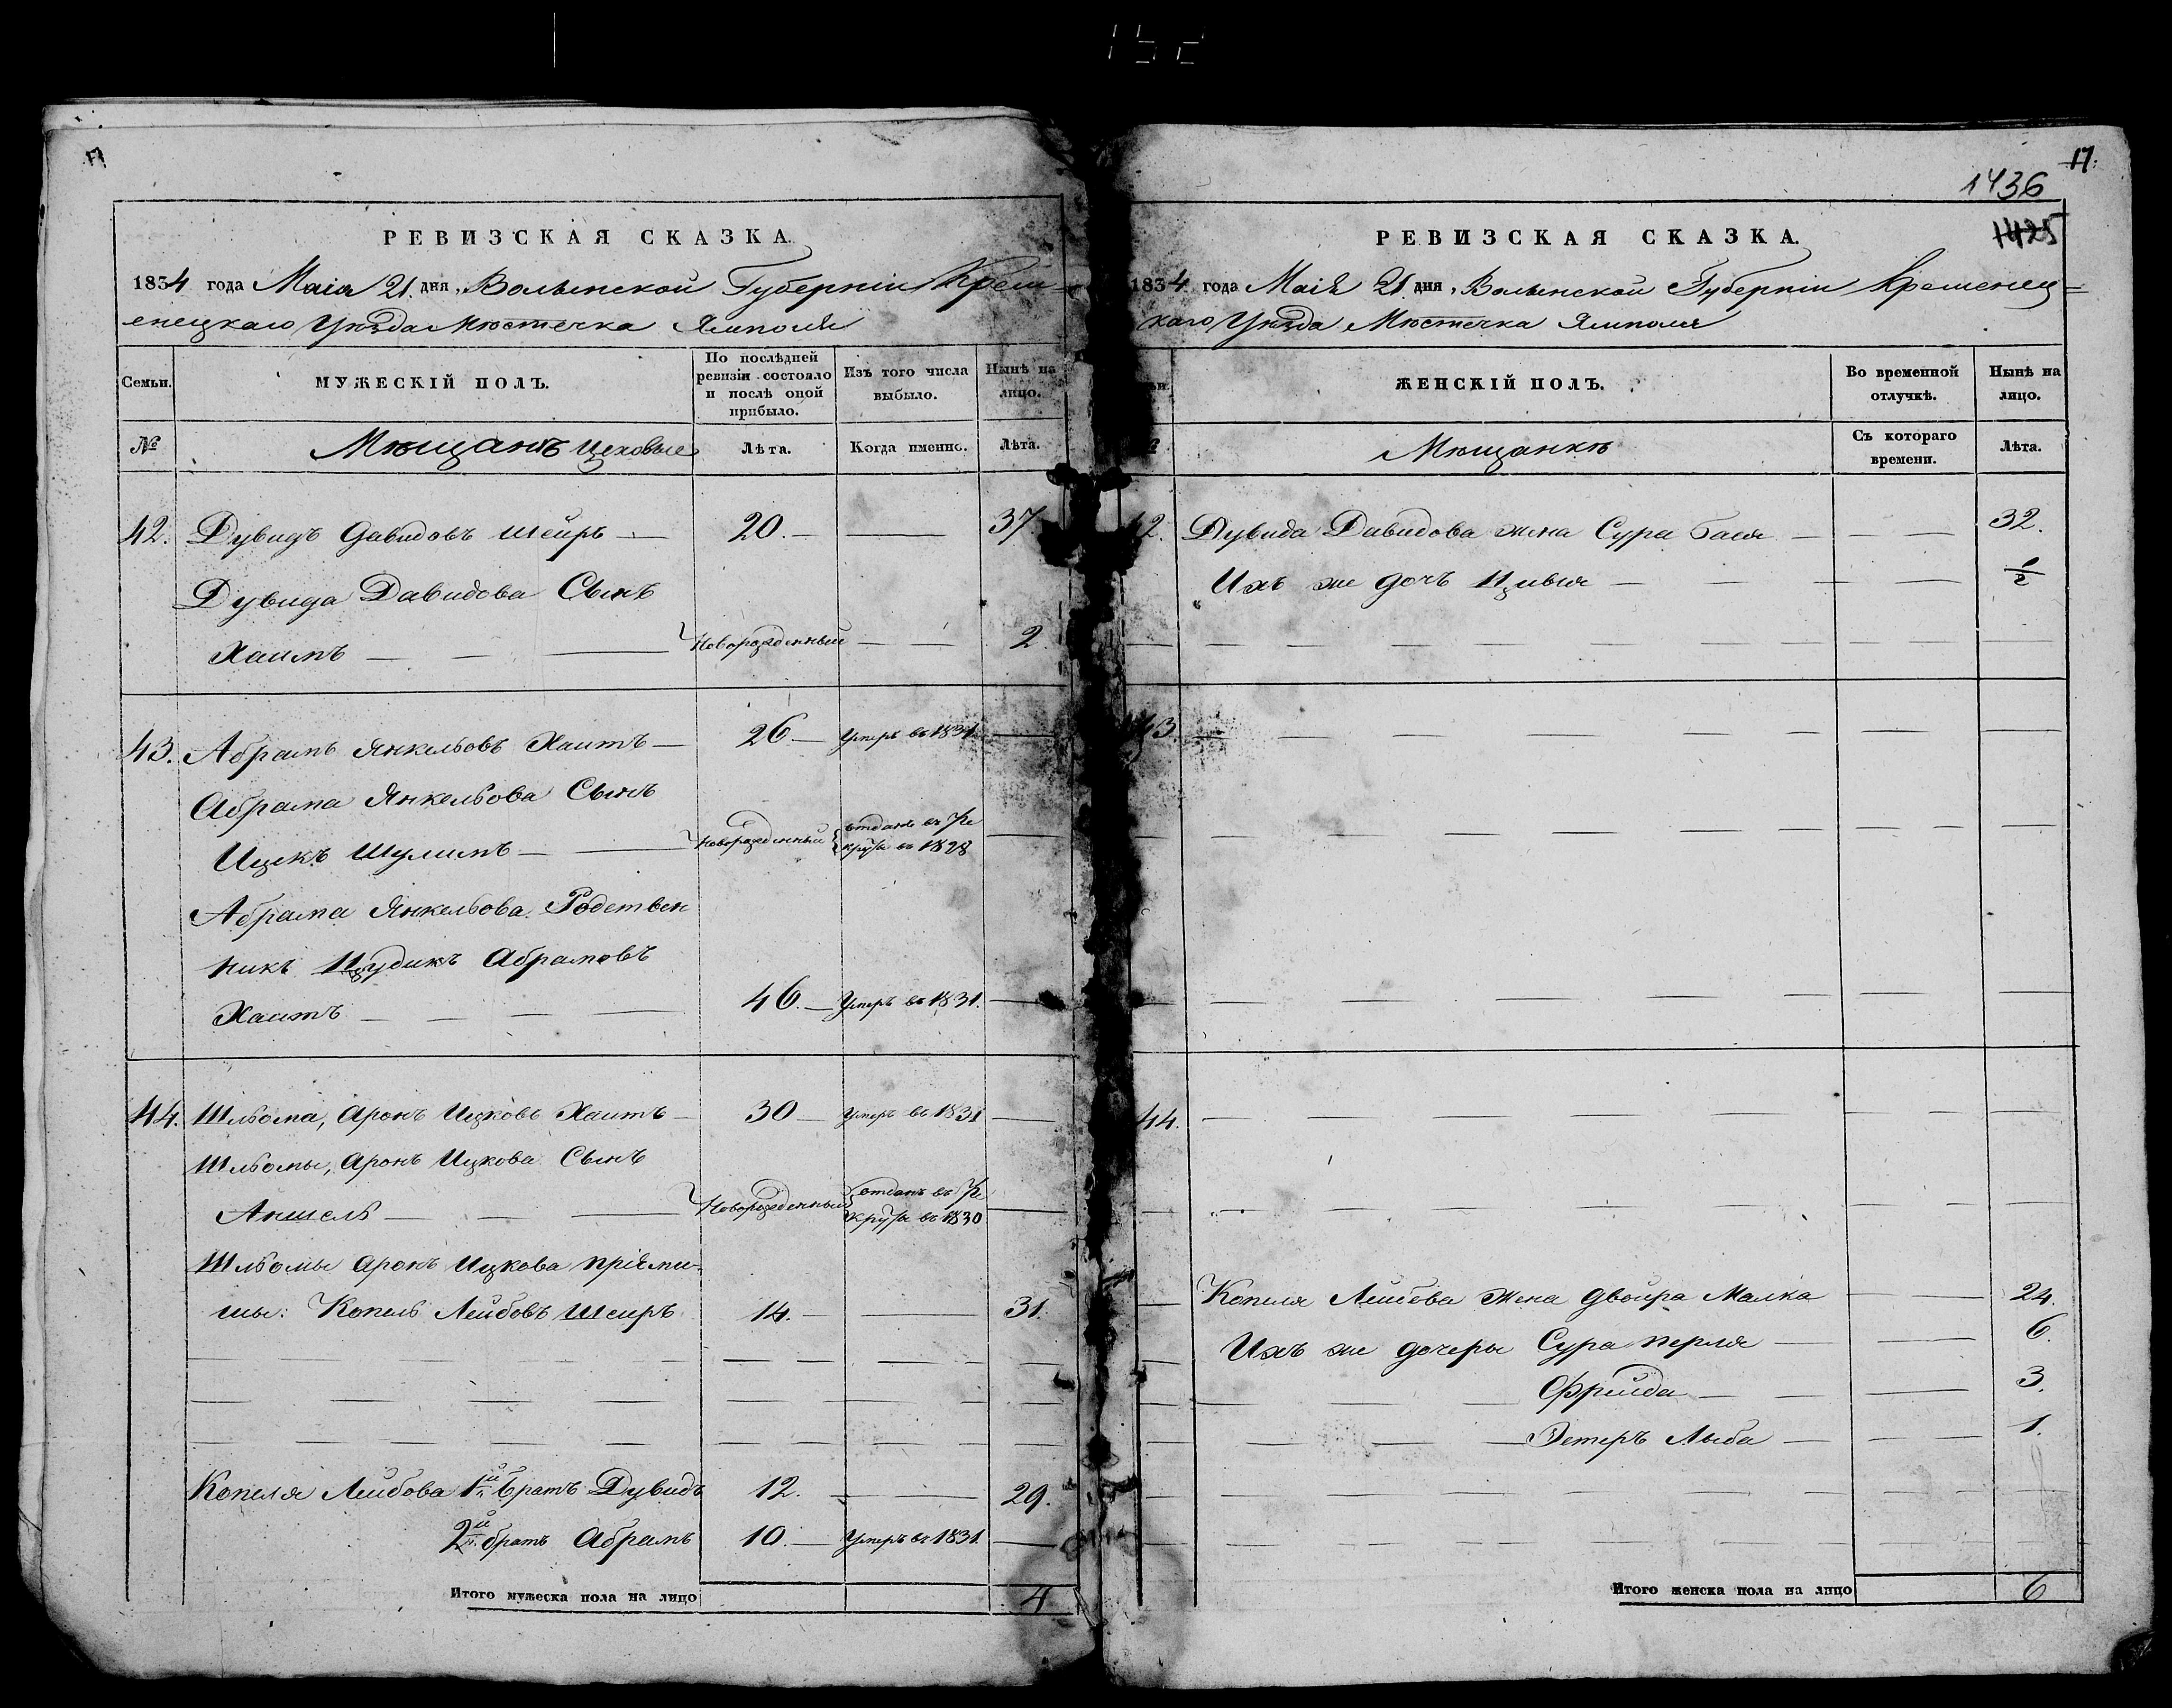 17
РЕВИЗСКАЯ СКАЗКА.
1834 года Маія 21. дня, Волынской Губерніи Крем-
енецкаго Уѣзда Мѣстечка Ямполя
Семьи.
МУЖЕСКІЙ ПОЛЪ.
По послѣдней ревизіи состояло и послѣ оной прибыло.
Изъ того числа выбыло.
Нынѣ на лицо.
№
Мѣщанъ цеховые
Лѣта.
Когда именно.
Лѣта.
42. Дувидъ Давидовъ Шейръ — 20. — — 37
Дувида Давидова Сынъ
Хаимъ — Новорожденный — 2.
43. Абрамъ Янкельовъ Хаитъ — 26 — Умеръ въ 1831. —
Абрама Янкельова Сынъ
Ицекъ Шулимъ — Новорожденный отданъ въ Ре
круты въ 1828 —
Абрама Янкельова Родствен
никъ Цудикъ Абрамовъ
Хаитъ — 46. — Умеръ въ 1831. —
44. Шльома, Аронъ Ицковъ Хаитъ — 30 — Умеръ въ 1831 —
Шльомы, Аронъ Ицкова Сынъ
Аншель — Новорожденный отданъ въ Ре
круты въ 1830 —
Шльомы Аронъ Ицкова пріеми-
шы: Копель Лейбовъ Шеиръ 14. — — 31.
Копеля Лейбова 1й братъ Дувидъ 12. — 29.
2й братъ Абрамъ 10. — Умеръ въ 1831. —
Итого мужеска пола на лицо 4
17.
1436
1425
РЕВИЗСКАЯ СКАЗКА.
1834 года Маія 21 дня, Волынской Губерніи Кременец=
каго Уѣзда Мѣстечка Ямполя
ЖЕНСКІЙ ПОЛЪ.
Во временной отлучкѣ.
Нынѣ на лицо.
Мѣщанкѣ
Съ котораго времени.
Лѣта.
42. Дувида Давидова жена Сура Бася — 32.
Ихъ же дочъ Цивья — 1/2
43.
44.
Копеля Лейбова жена Двойра Малка — 24.
Ихъ же дочеры Сура Перля — 6.
Фрейда — 3.
Эстеръ Лыба — 1.
Итого женска пола на лицо 6